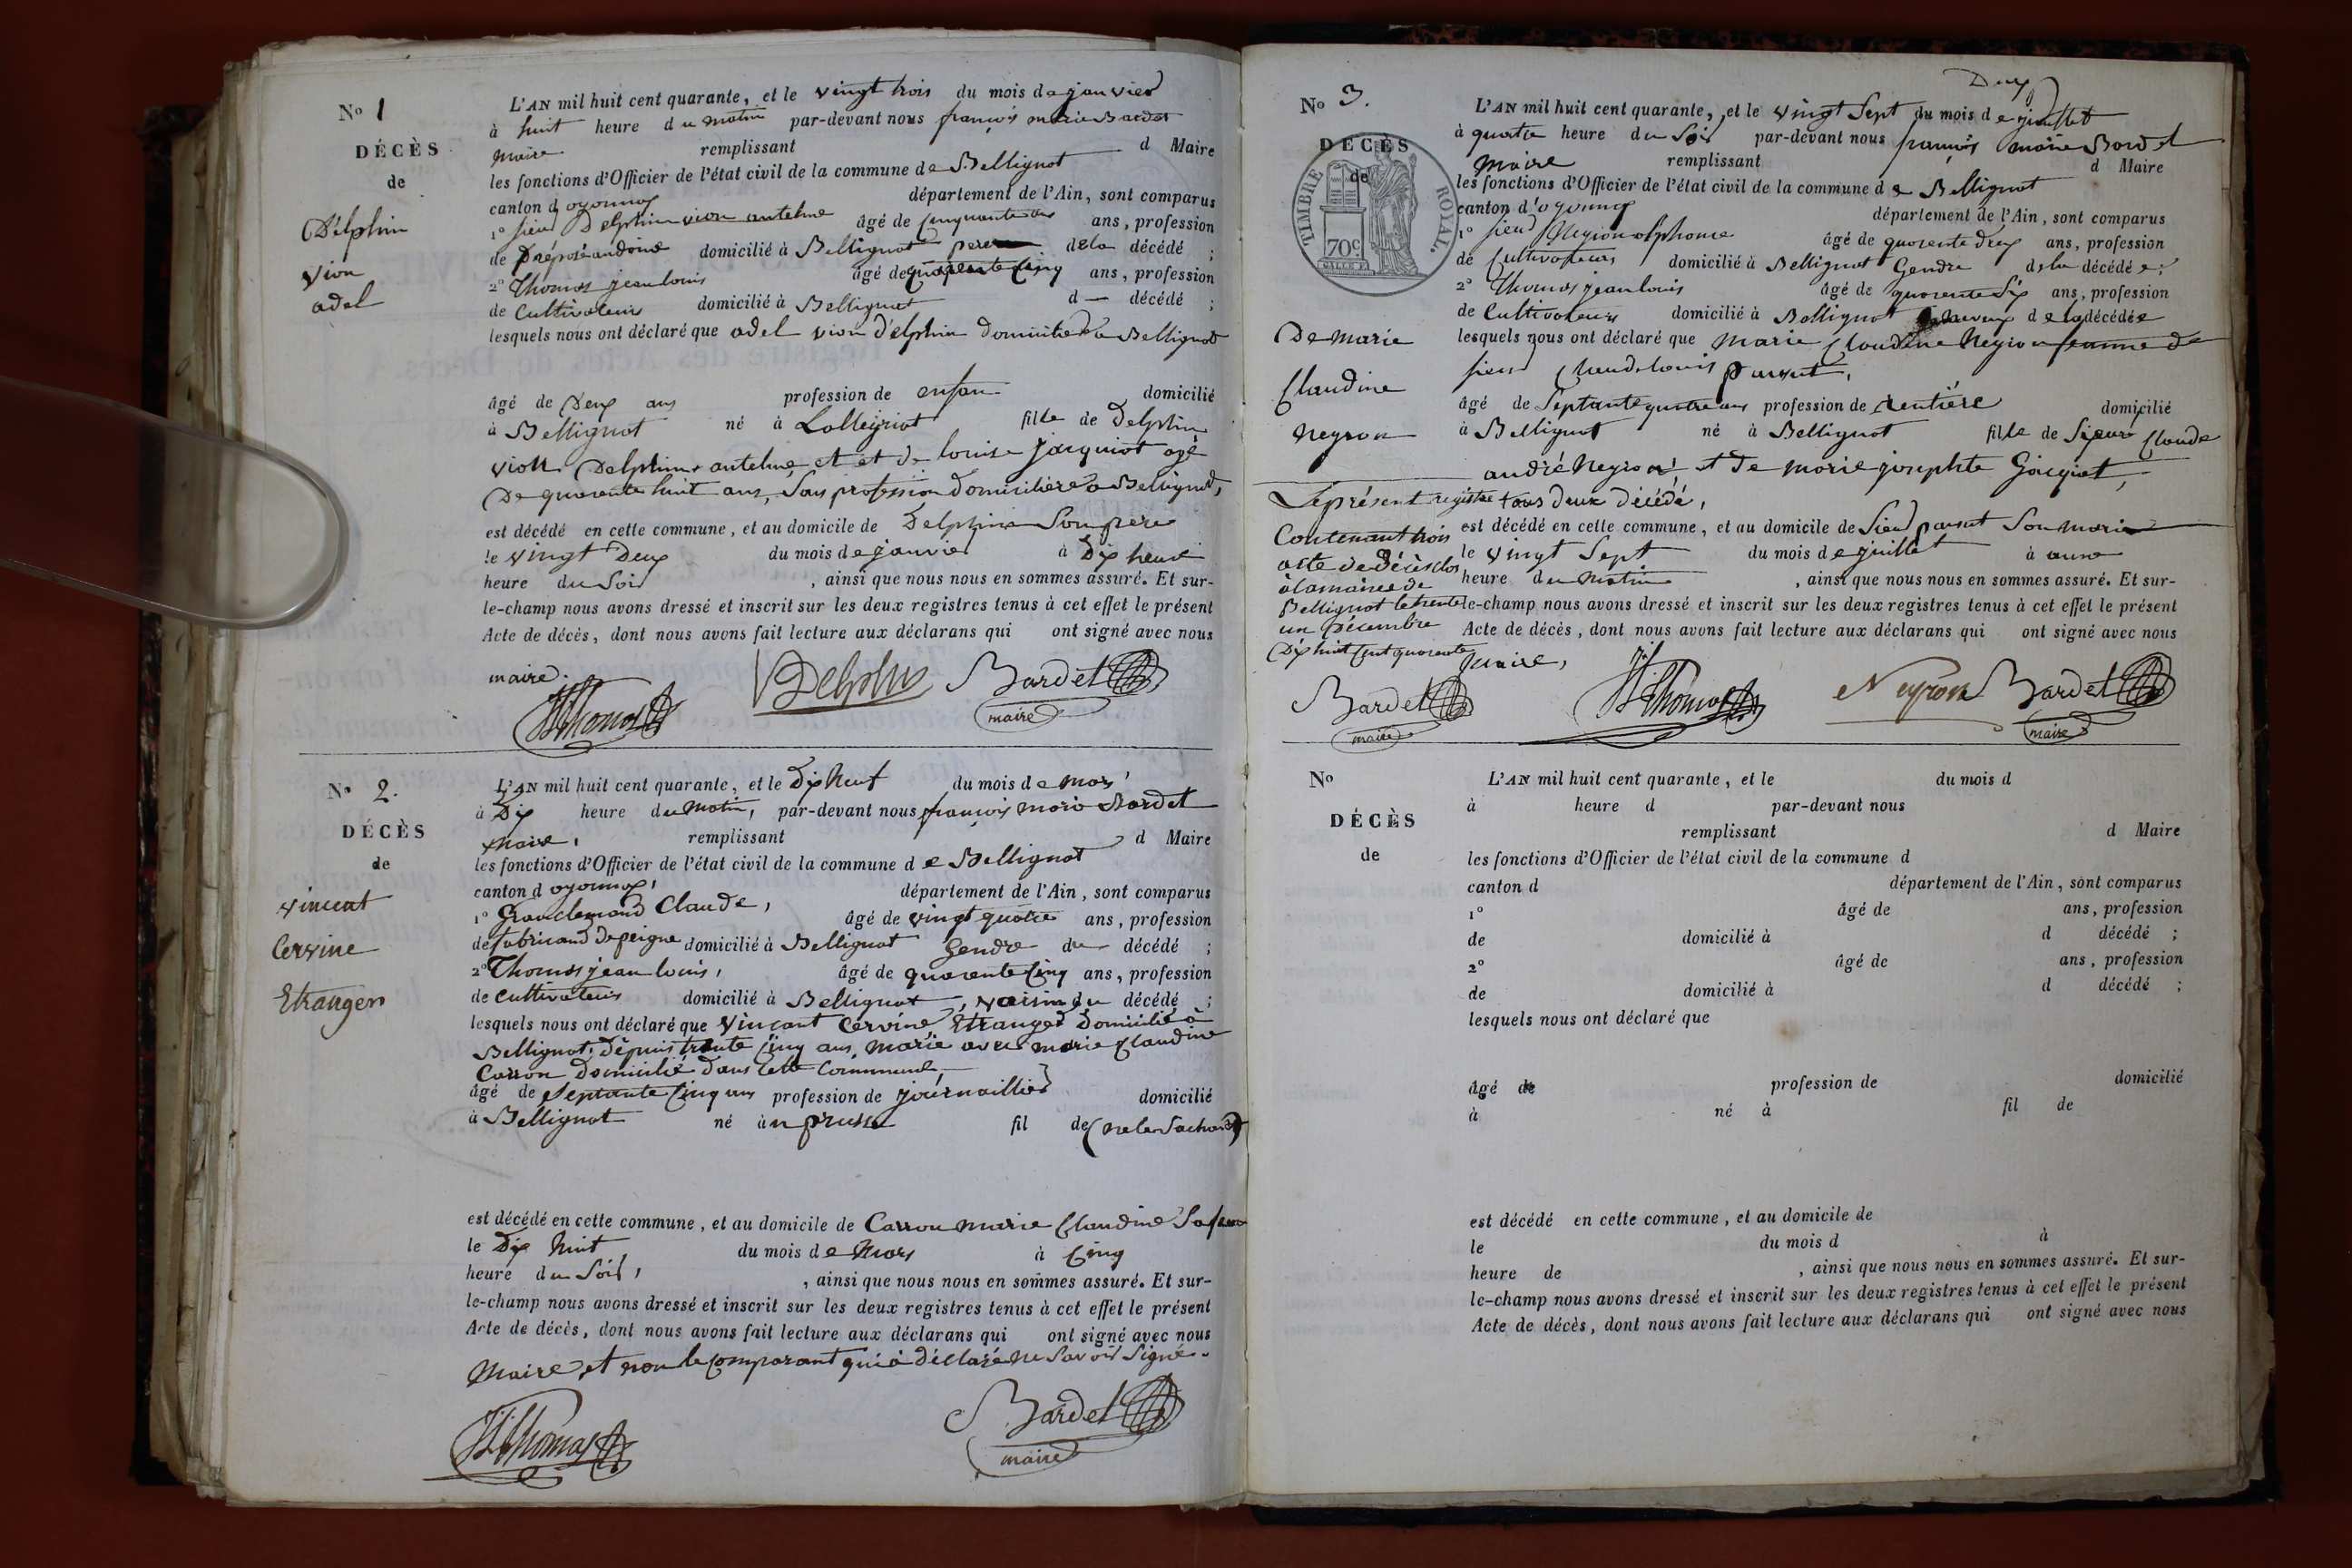 No 1
DÉCÈS
de
Delphin
vion
adel
L'AN mil huit cent quarante, et le vingt trois du mois de janvier
à huit heure du matin par-devant nous françois marie Bardet
maire remplissant d Maire
les fonctions d'Officier de l'état civil de la commune de Bellignat
canton d oyonnax département de l'Ain, sont comparus
1o sieur Delphin vion antelme âgé de cinquante ans ans, profession
de préposé domicilié à Bellignat pere de la décédé ;
2o Thomas jean louis âgé de quarente cinq ans, profession
de cultivateur domicilié à Bellignat d — décédé ;
lesquels nous ont déclaré que adel vion délphin domicilié a Bellignat
âgé de Deux ans profession de enfan domicilié
à Bellignat né à Lalleyriat fille de Delphin
vion Delphin antelme et et de louise jacquiot agé
De quarente huit ans, Sans profession domicilière a Bellignat,
est décédé en cette commune, et au domicile de Delphin Son père
le vingt Deux du mois de janvier à Dix heure
heure du Soir , ainsi que nous nous en sommes assuré. Et sur-
le-champ nous avons dressé et inscrit sur les deux registres tenus à cet effet le présent
Acte de décès, dont nous avons fait lecture aux déclarans qui ont signé avec nous
maire.
JL Thomas VDelphin Bardet
maire
No 2.
DÉCÈS
de
vincent
Cervine
Etranger
L'AN mil huit cent quarante, et le Dix Neuf du mois de mars
à Dix heure du matin, par-devant nous françois marie Bardet
maire, remplissant d Maire
les fonctions d'Officier de l'état civil de la commune de Bellignat
canton d oyonnax, département de l'Ain, sont comparus
1o Granclemand Claude, âgé de vingt quatre ans, profession
de fabricand de peigne domicilié à Bellignat Gendre du décédé ;
2o Thomas jean louis, âgé de quarente cinq ans, profession
de cultivateur domicilié à Bellignat, voisin du décédé ;
lesquels nous ont déclaré que Vincant Cervine Etranger domicilié à
Bellignat, dépuis trente cinq ans, marié avec marie Claudine
Carron domicilié dans cette Commune,
âgé de Septante cinq ans profession de journaillier domicilié
à Bellignat né à n prusse fil de (ne le Sachant)
est décédé en cette commune, et au domicile de Carron marie Claudine Sa
le Dix huit du mois de mars à Cinq
heure du Soir, , ainsi que nous nous en sommes assuré. Et sur-
le-champ nous avons dressé et inscrit sur les deux registres tenus à cet effet le présent
Acte de décès, dont nous avons fait lecture aux déclarans qui ont signé avec nous
Maire et non le comparant qui à déclaré ne Savoir Signé.
JL Thomas Bardet
maire
Deux
No 3.
DÉCÈS
de
TIMBRE ROYAL.
70c
De marie
Claudine
neyron
L'AN mil huit cent quarante, et le vingt Sept du mois de juillet
à quatre heure du Soir par-devant nous françois marie Bardet
Maire remplissant d Maire
les fonctions d'Officier de l'état civil de la commune de Bellignat
canton d'oyonnax département de l'Ain, sont comparus
1o sieur Neyron alphonse âgé de quarente deux ans, profession
de Cultivateur domicilié à Bellignat Gendre de la décédée;
2o Thomas jean louis âgé de quarente Six ans, profession
de Cultivateur domicilié à Bellignat neveux de la décédée
lesquels nous ont déclaré que marie Claudine Neyron femme de
sieur Claude louis pansut,
âgé de Septante quatre ans profession de rentière domicilié
à Bellignat né à Bellignat fille de Sieur Claude
andré Neyron et de marie josephte Gacquet,
tous deux décédé,
est décédé en cette commune, et au domicile de Sieur pansut Son mari
le vingt Sept du mois de juillet à onze
heure du matin , ainsi que nous nous en sommes assuré. Et sur-
le-champ nous avons dressé et inscrit sur les deux registres tenus à cet effet le présent
Acte de décès, dont nous avons fait lecture aux déclarans qui ont signé avec nous
maire,
Le présent registre
Contenant trois
acte de décès clos
à la mairie de
Bellignat le trente
un Décembre
Dix huit cent quarente
Bardet
maire
JL Thomas Neyron Bardet
maire
No
DÉCÈS
de
L'AN mil huit cent quarante, et le du mois d
à heure d par-devant nous
remplissant d Maire
les fonctions d'Officier de l'état civil de la commune d
canton d département de l'Ain, sont comparus
1o âgé de ans, profession
de domicilié à d décédé ;
2o âgé de ans, profession
de domicilié à d décédé ;
lesquels nous ont déclaré que
âgé de profession de domicilié
à né à fil de
est décédé en cette commune, et au domicile de
le du mois d à
heure de , ainsi que nous nous en sommes assuré. Et sur-
le-champ nous avons dressé et inscrit sur les deux registres tenus à cet effet le présent
Acte de décès, dont nous avons fait lecture aux déclarans qui ont signé avec nous